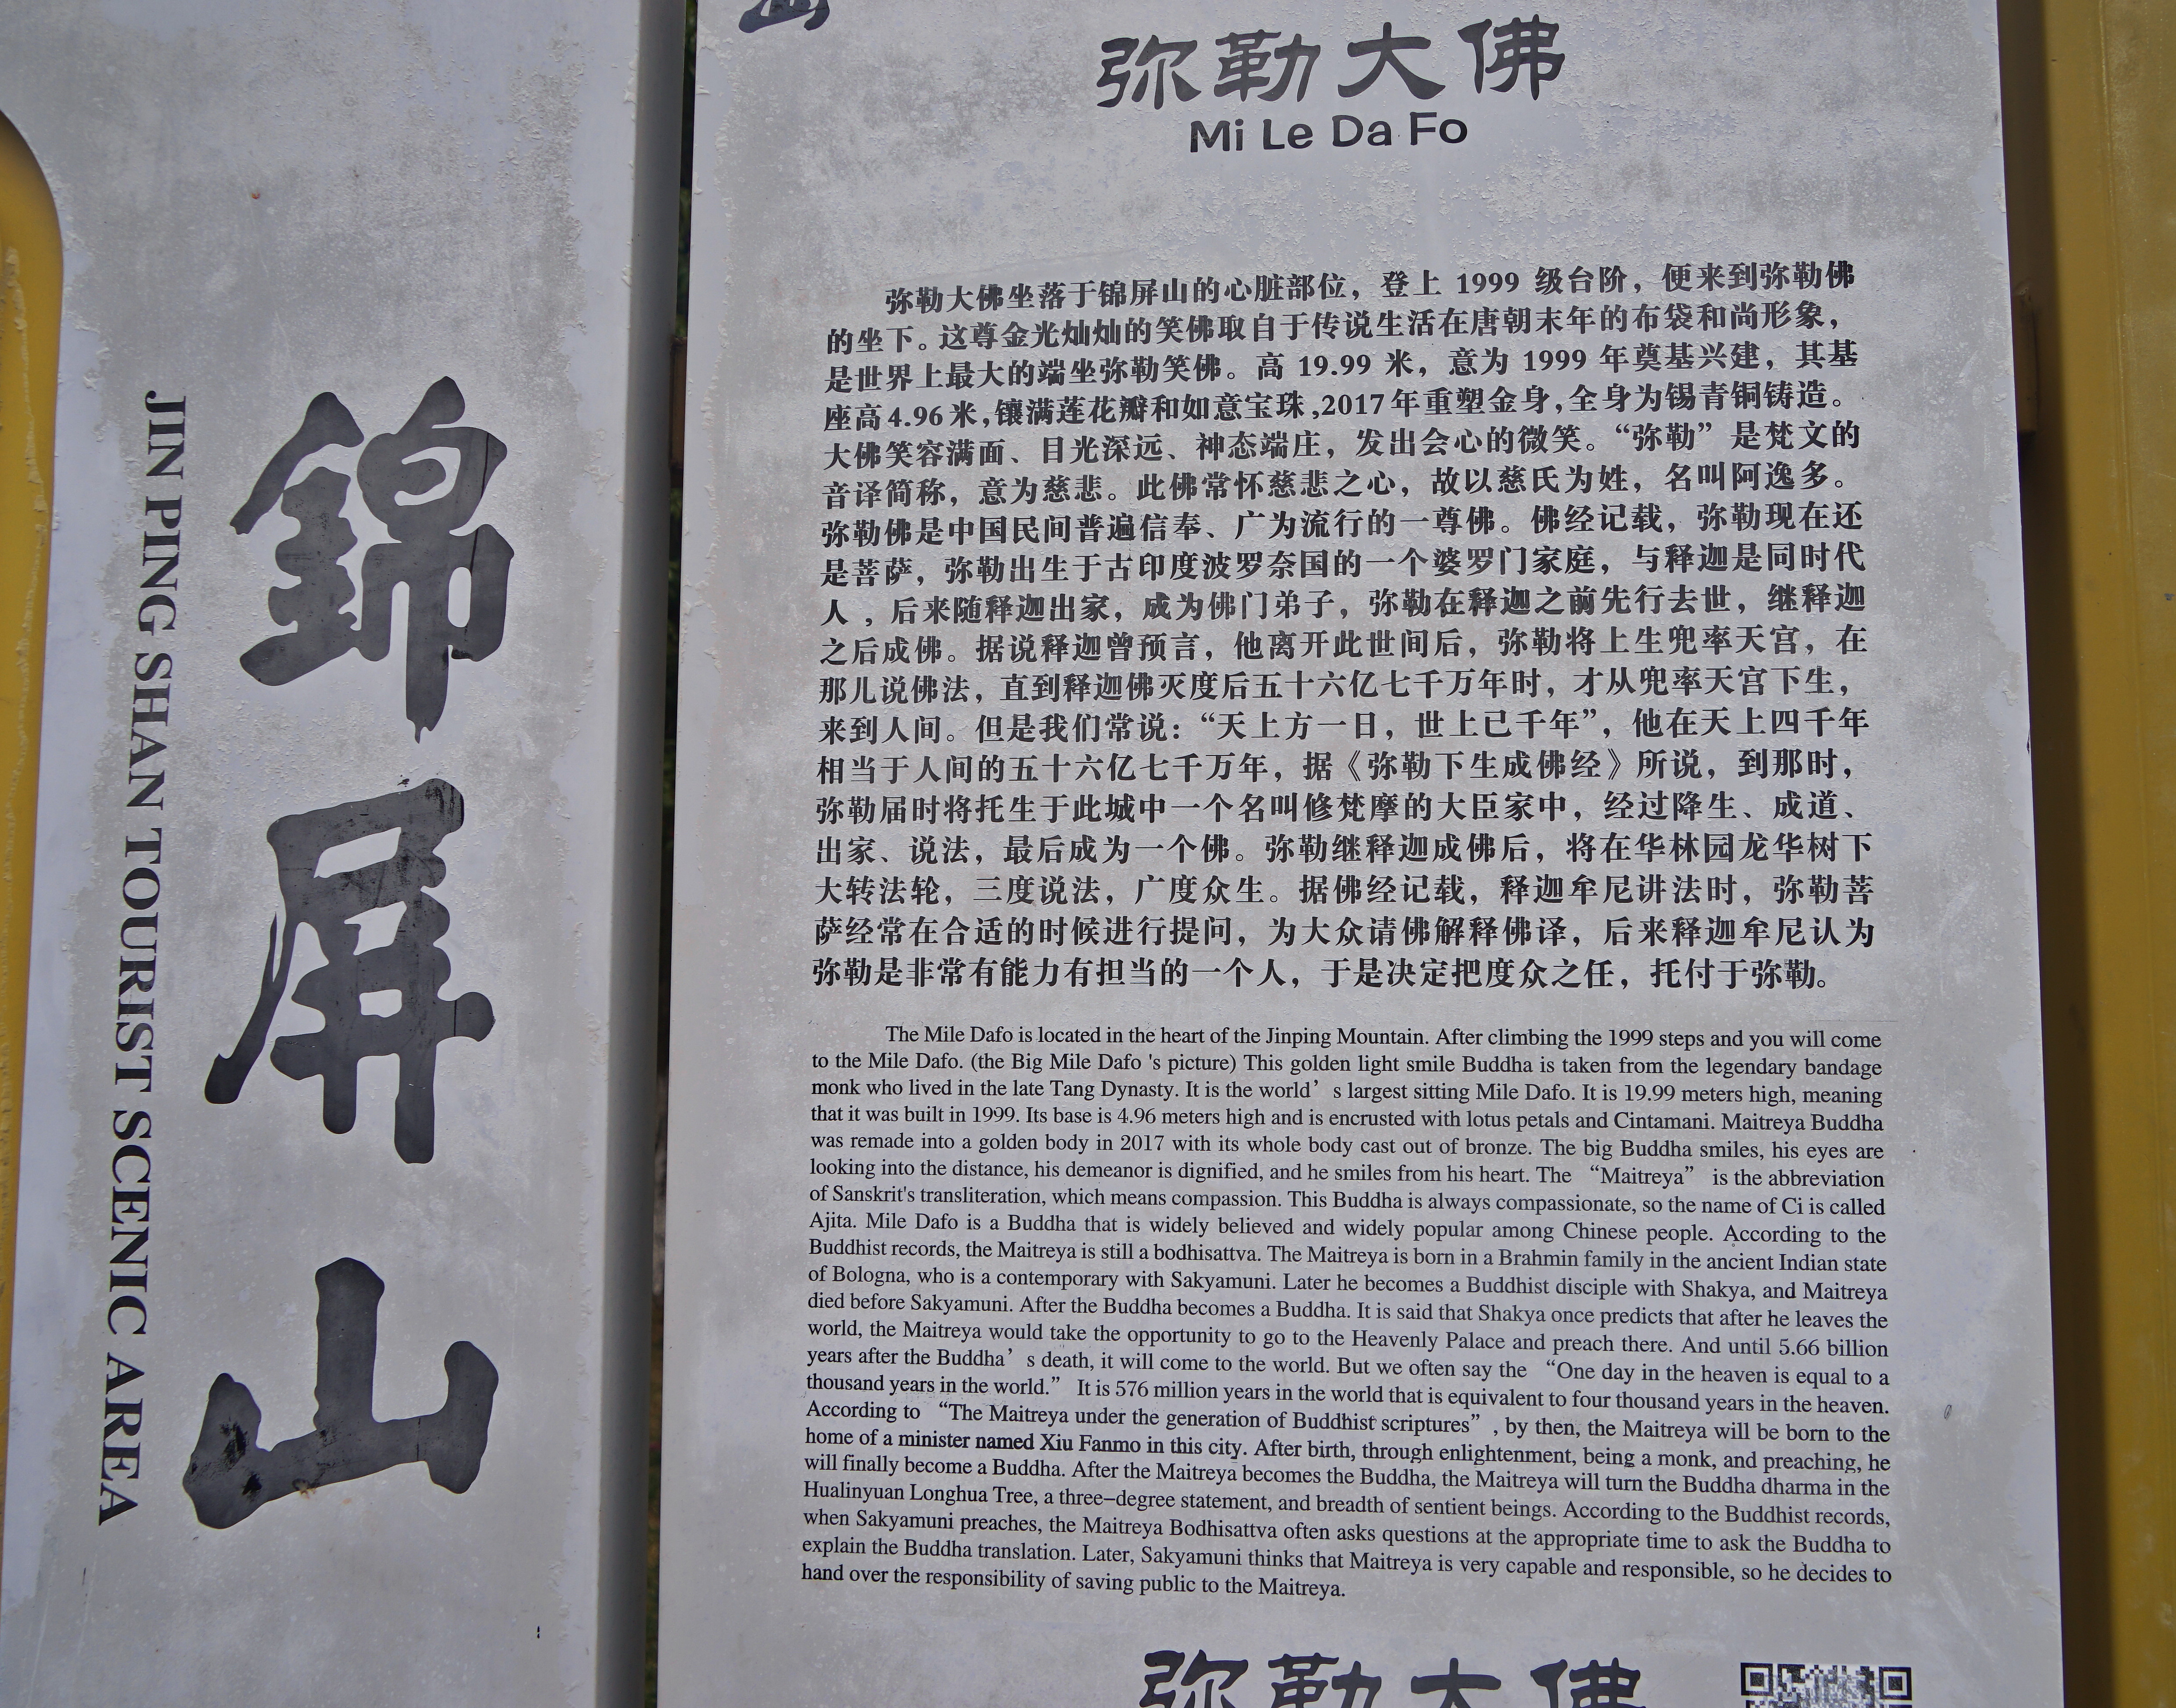 錦屏山
JIN PING SHAN TOURIST SCENIC AREA
弥勒大佛
Mi Le Da Fo
弥勒大佛坐落于锦屏山的心脏部位，登上 1999 级台阶，便来到弥勒佛
的坐下。这尊金光灿灿的笑佛取自于传说生活在唐朝末年的布袋和尚形象，
是世界上最大的端坐弥勒笑佛。高 19.99 米，意为 1999 年奠基兴建，其基
座高4.96米,镶满莲花瓣和如意宝珠,2017年重塑金身,全身为锡青铜铸造。
大佛笑容满面、目光深远、神态端庄，发出会心的微笑。“弥勒”是梵文的
音译简称，意为慈悲。此佛常怀慈悲之心，故以慈氏为姓，名叫阿逸多。
弥勒佛是中国民间普遍信奉、广为流行的一尊佛。佛经记载，弥勒现在还
是菩萨，弥勒出生于古印度波罗奈国的一个婆罗门家庭，与释迦是同时代
人，后来随释迦出家，成为佛门弟子，弥勒在释迦之前先行去世，继释迦
之后成佛。据说释迦曾预言，他离开此世间后，弥勒将上生兜率天宫，在
那儿说佛法，直到释迦佛灭度后五十六亿七千万年时，才从兜率天宫下生，
来到人间。但是我们常说：“天上方一日，世上已千年”，他在天上四千年
相当于人间的五十六亿七千万年，据《弥勒下生成佛经》所说，到那时，
弥勒届时将托生于此城中一个名叫修梵摩的大臣家中，经过降生、成道、
出家、说法，最后成为一个佛。弥勒继释迦成佛后，将在华林园龙华树下
大转法轮，三度说法，广度众生。据佛经记载，释迦牟尼讲法时，弥勒菩
萨经常在合适的时候进行提问，为大众请佛解释佛译，后来释迦牟尼认为
弥勒是非常有能力有担当的一个人，于是决定把度众之任，托付于弥勒。
The Mile Dafo is located in the heart of the Jinping Mountain. After climbing the 1999 steps and you will come
to the Mile Dafo. (the Big Mile Dafo 's picture) This golden light smile Buddha is taken from the legendary bandage
monk who lived in the late Tang Dynasty. It is the world’s largest sitting Mile Dafo. It is 19.99 meters high, meaning
that it was built in 1999. Its base is 4.96 meters high and is encrusted with lotus petals and Cintamani. Maitreya Buddha
was remade into a golden body in 2017 with its whole body cast out of bronze. The big Buddha smiles, his eyes are
looking into the distance, his demeanor is dignified, and he smiles from his heart. The “Maitreya” is the abbreviation
of Sanskrit's transliteration, which means compassion. This Buddha is always compassionate, so the name of Ci is called
Ajita. Mile Dafo is a Buddha that is widely believed and widely popular among Chinese people. According to the
Buddhist records, the Maitreya is still a bodhisattva. The Maitreya is born in a Brahmin family in the ancient Indian state
of Bologna, who is a contemporary with Sakyamuni. Later he becomes a Buddhist disciple with Shakya, and Maitreya
died before Sakyamuni. After the Buddha becomes a Buddha. It is said that Shakya once predicts that after he leaves the
world, the Maitreya would take the opportunity to go to the Heavenly Palace and preach there. And until 5.66 billion
years after the Buddha’s death, it will come to the world. But we often say the “One day in the heaven is equal to a
thousand years in the world.” It is 576 million years in the world that is equivalent to four thousand years in the heaven.
According to “The Maitreya under the generation of Buddhist scriptures”, by then, the Maitreya will be born to the
home of a minister named Xiu Fanmo in this city. After birth, through enlightenment, being a monk, and preaching, he
will finally become a Buddha. After the Maitreya becomes the Buddha, the Maitreya will turn the Buddha dharma in the
Hualinyuan Longhua Tree, a three-degree statement, and breadth of sentient beings. According to the Buddhist records,
when Sakyamuni preaches, the Maitreya Bodhisattva often asks questions at the appropriate time to ask the Buddha to
explain the Buddha translation. Later, Sakyamuni thinks that Maitreya is very capable and responsible, so he decides to
hand over the responsibility of saving public to the Maitreya.
弥勒大佛